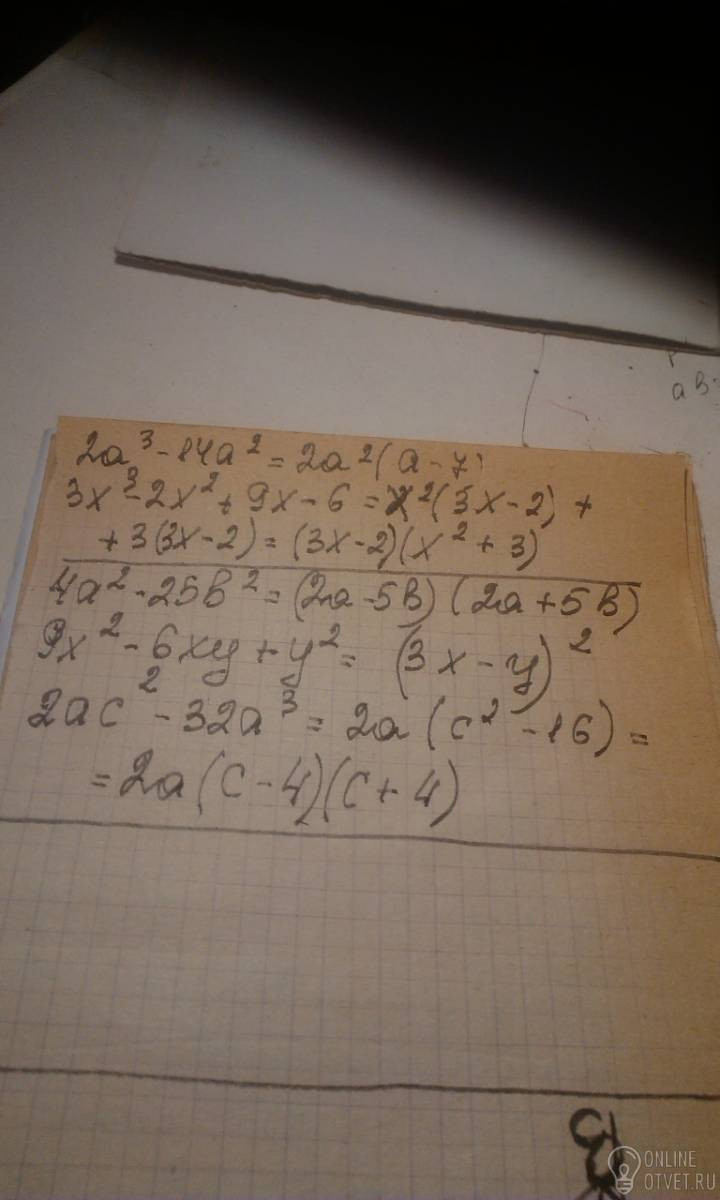 ab.
2a³-14a²=2a²(a-7)
3x³-2x²+9x-6=x²(3x-2)+
+3(3x-2)=(3x-2)(x²+3)
4a²-25b²=(2a-5b)(2a+5b)
9x²-6xy+y²= (3x-y)²
2ac²-32a³=2a(c²-16)=
=2a(c-4)(c+4)
ONLINE
OTVET.RU